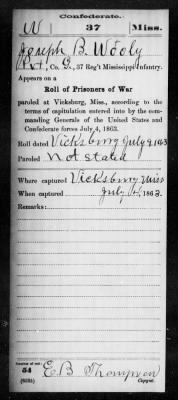 Confederate.
W 37 Miss.
Joseph B. Wooly
Pvt, Co. G, 37 Reg't Mississippi Infantry.
Appears on a
Roll of Prisoners of War
paroled at Vicksburg, Miss., according to the
terms of capitulation entered into by the com-
manding Generals of the United States and
Confederate forces July 4, 1863.
Roll dated Vicksburg July 9 1863
Paroled Not stated
Where captured Vicksburg Miss
When captured July 4, 1863.
Remarks:
Number of roll:
54
E.B. Thompson
Copyist.